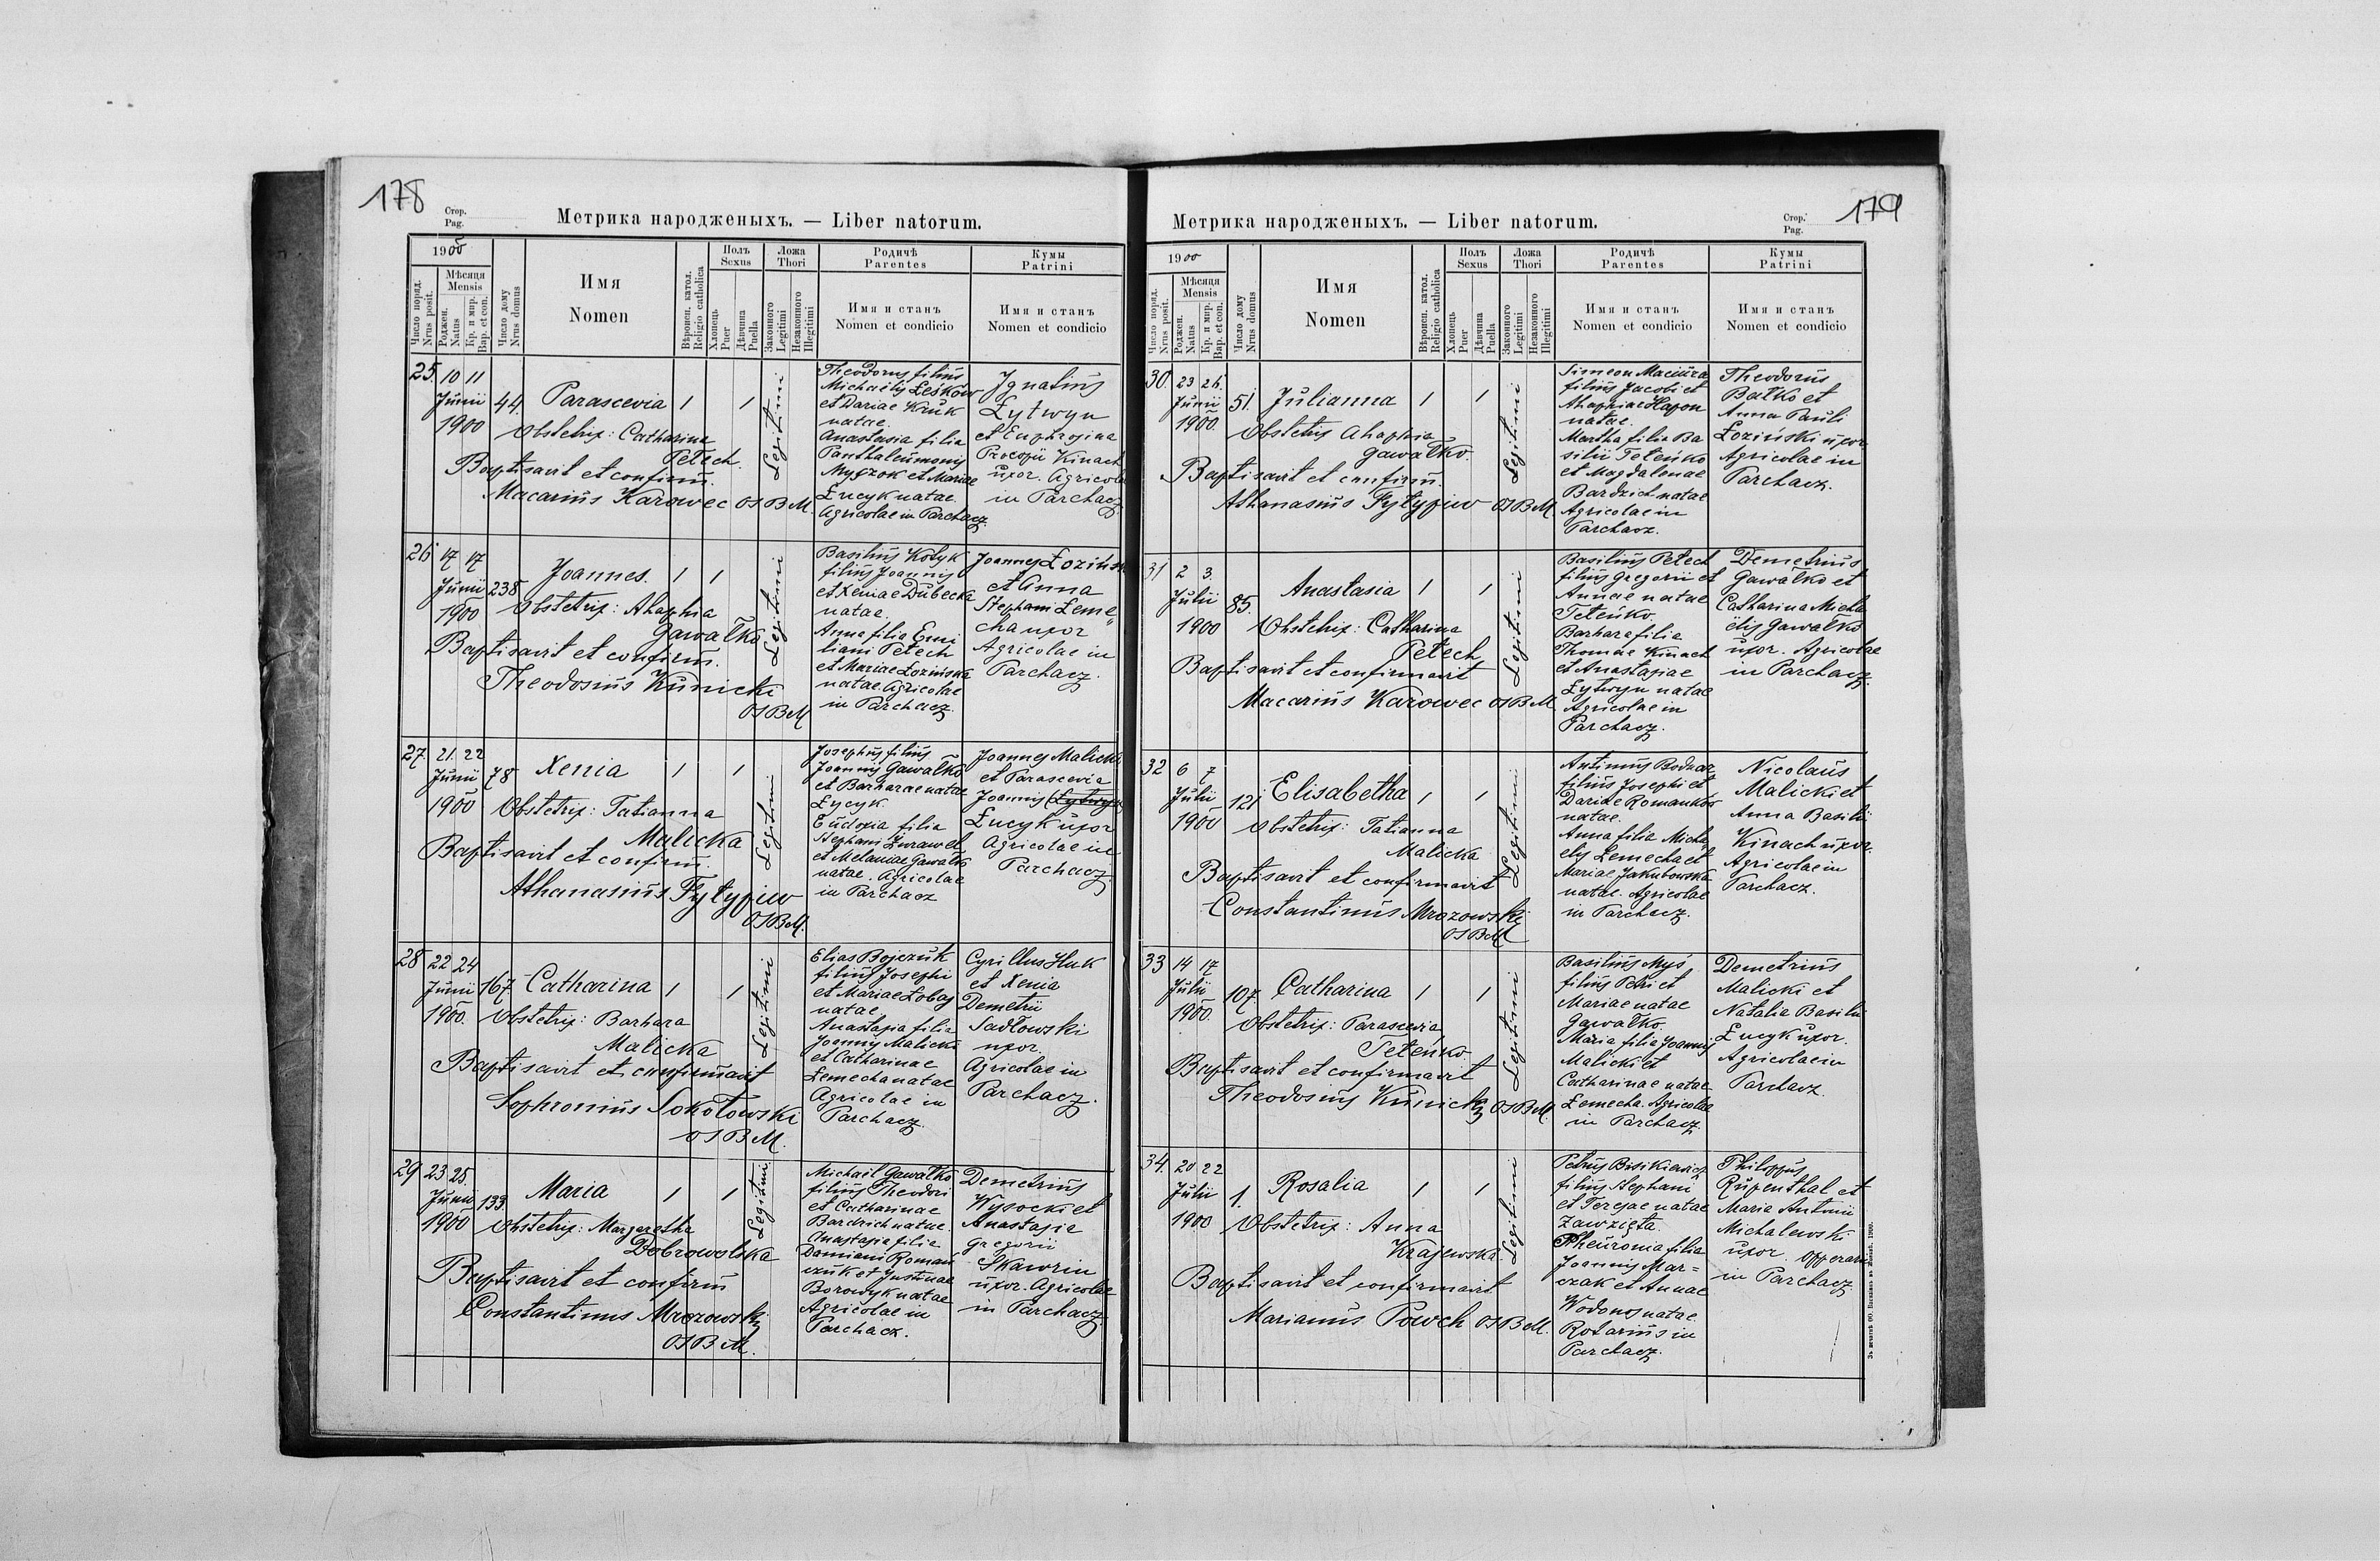 178
Стор.
Pag.
Метрика народженыхъ. — Liber natorum.
1900
Число поряд.
Nrus posit.
Мѣсяця
Mensis
Роджен.
Natus
Кр. и мир.
Bap. et con.
Число дому
Nrus domus
Имя
Nomen
Вѣроисп. катол.
Religio catholica
Полъ
Sexus
Хлопець
Puer
Дѣвчина
Puella
Ложа
Thori
Законного
Legitimi
Незаконного
Illegitimi
Родичѣ
Parentes
Имя и станъ
Nomen et condicio
Кумы
Patrini
Имя и станъ
Nomen et condicio
25. 10 11
Junii
1900
44.
Parascevia 1 1
Legitimi
Obstetrix: Catharina
Petech.
Baptisavit et confirm.
Macarius Karowec OSBM.
Theodorus filius
Michaelis Leśków
et Dariae Kruk
natae.
Anastasia filia
Panthaleimonis
Myszok et Mariae
Łucyk natae.
Agricolae in Parchacz.
Ignatius
Łytwyn
et Euphrosina
Procopii Kinach
uxor. Agricolae
in Parchacz.
26 17 17
Junii
1900
238
Joannes. 1 1
Legitimi
Obstetrix: Ahaphia
Gawałko
Baptisavit et confirm.
Theodosius Kunicki
OSBM
Basilius Kotyk
filius Joannis
et Xeniae Dubecka
natae.
Anna filia Emi
liani Petech
et Mariae Łozińska
natae. Agricolae
in Parchacz.
Joannes Łoziński
et Anna
Stephani Leme
cha uxor
Agricolae in
Parchacz.
27. 21. 22
Junii
1900
78
Xenia 1 1
Legitimi
Obstetrix: Tatianna
Malicka
Baptisavit et confirm.
Athanasius Fylypiw
OSBM.
Josephus filius
Joannis Gawałko
et Barbarae natae
Łycyk.
Eudoxia filia
Stephani Żurawel
et Melaniae Gawałko
natae. Agricolae
in Parchacz
Joannes Malicki
et Parascevia
Joannis (Łytwyn
Łucyk uxor
Agricolae in
Parchacz.
28 22 24
Junii
1900.
167
Catharina 1 1
Legitimi
Obstetrix: Barbara
Malicka
Baptisavit et confirmavit
Sophronius Sokołowski
OSBM.
Elias Bojczuk
filius Josephi
et Mariae Łobay
natae.
Anastasia filia
Joannis Malicki
et Catharinae
Lemecha natae
Agricolae in
Parchacz.
Cyrillus Huk
et Xenia
Demetrii
Sadłowski
uxor.
Agricolae in
Parchacz.
29 23 25.
Junii
1900
133.
Maria 1 1
Legitimi
Obstetrix: Margaretha
Dobrowolska
Baptisavit et confirm
Constantinus Mrozowski
OSBM.
Michaël Gawałko
filius Theodori
et Catharinae
Bardzich natae.
Anastasia filia
Damiani Roman
czuk et Justinae
Borowyk natae
Agricolae in
Parchacz.
Demetrius
Wysocki et
Anastasia
Gregorii
Skawrin
uxor. Agricolae
in Parchacz.
Метрика народженыхъ. — Liber natorum.
Стор.
Pag.
179
1900
Число поряд.
Nrus posit.
Мѣсяця
Mensis
Роджен.
Natus
Кр. и мир.
Bap. et con.
Число дому
Nrus domus
Имя
Nomen
Вѣроисп. катол.
Religio catholica
Полъ
Sexus
Хлопець
Puer
Дѣвчина
Puella
Ложа
Thori
Законного
Legitimi
Незаконного
Illegitimi
Родичѣ
Parentes
Имя и станъ
Nomen et condicio
Кумы
Patrini
Имя и станъ
Nomen et condicio
30. 23 26.
Junii
1900.
51.
Julianna 1 1
Legitimi
Obstetrix Ahaphia
Gawałko.
Baptisavit et confirm.
Athanasius Fylypiw OSBM.
Simeon Maciura
filius Jacobi et
Ahaphiae Hapon
natae.
Martha filia Ba
silii Teteńko
et Magdalenae
Bardzich natae
Agricolae in
Parchacz.
Theodorus
Batko et
Anna Pauli
Łoziński uxor
Agricolae in
Parchacz.
31 2 3.
Julii
1900
85.
Anastasia 1 1
Legitimi
Obstetrix: Catharina
Petech
Baptisavit et confirmavit
Macarius Karowec OSBM
Basilius Petech
filius Gregorii et
Annae natae
Teteńko.
Barbara filia
Thomae Kinach
et Anastasiae
Łytwyn natae
Agricolae in
Parchacz.
Demetrius
Gawałko et
Catharina Micha
ëlis Gawałko
uxor. Agricolae
in Parchacz.
32 6 7
Julii
1900
121
Elisabetha 1 1
Legitimi
Obstetrix: Tatianna
Malicka
Baptisavit et confirmavit
Constantinus Mrozowski
OSBM
Antimus Bodnar
filius Josephi et
Dariae Romanków
natae.
Anna filia Micha
elis Lemecha et
Mariae Jakubowska
natae. Agricolae
in Parchacz.
Nicolaus
Malicki et
Anna Basilii
Kinach uxor.
Agricolae in
Parchacz.
33 14 17
Julii
1900.
107.
Catharina 1 1
Legitimi
Obstetrix: Parascevia
Teteńko
Baptisavit et confirmavit
Theodosius Kunicki OSBM.
Basilius Myś
filius Petri et
Mariae natae
Gawałko.
Maria filia Joannis
Malicki et
Catharinae natae
Lemecha. Agricolae
in Parchacz.
Demetrius
Malicki et
Natalia Basilii
Łucyk uxor.
Agricolae in
Parchacz.
34. 20 22
Julii
1900
1.
Rosalia 1 1
Legitimi
Obstetrix: Anna
Krajewska.
Baptisavit et confirmavit
Marianus Powch OSBM.
Petrus Busikiewicz
filius Stephani
et Teresae natae
Zawzięta.
Pheuronia filia
Joannis Mar=
czak et Annae
Wodonos natae
Rotarius in
Parchacz.
Philippus
Rupenthal et
Maria Antonii
Michalewski
uxor. Opperarii
in Parchacz.